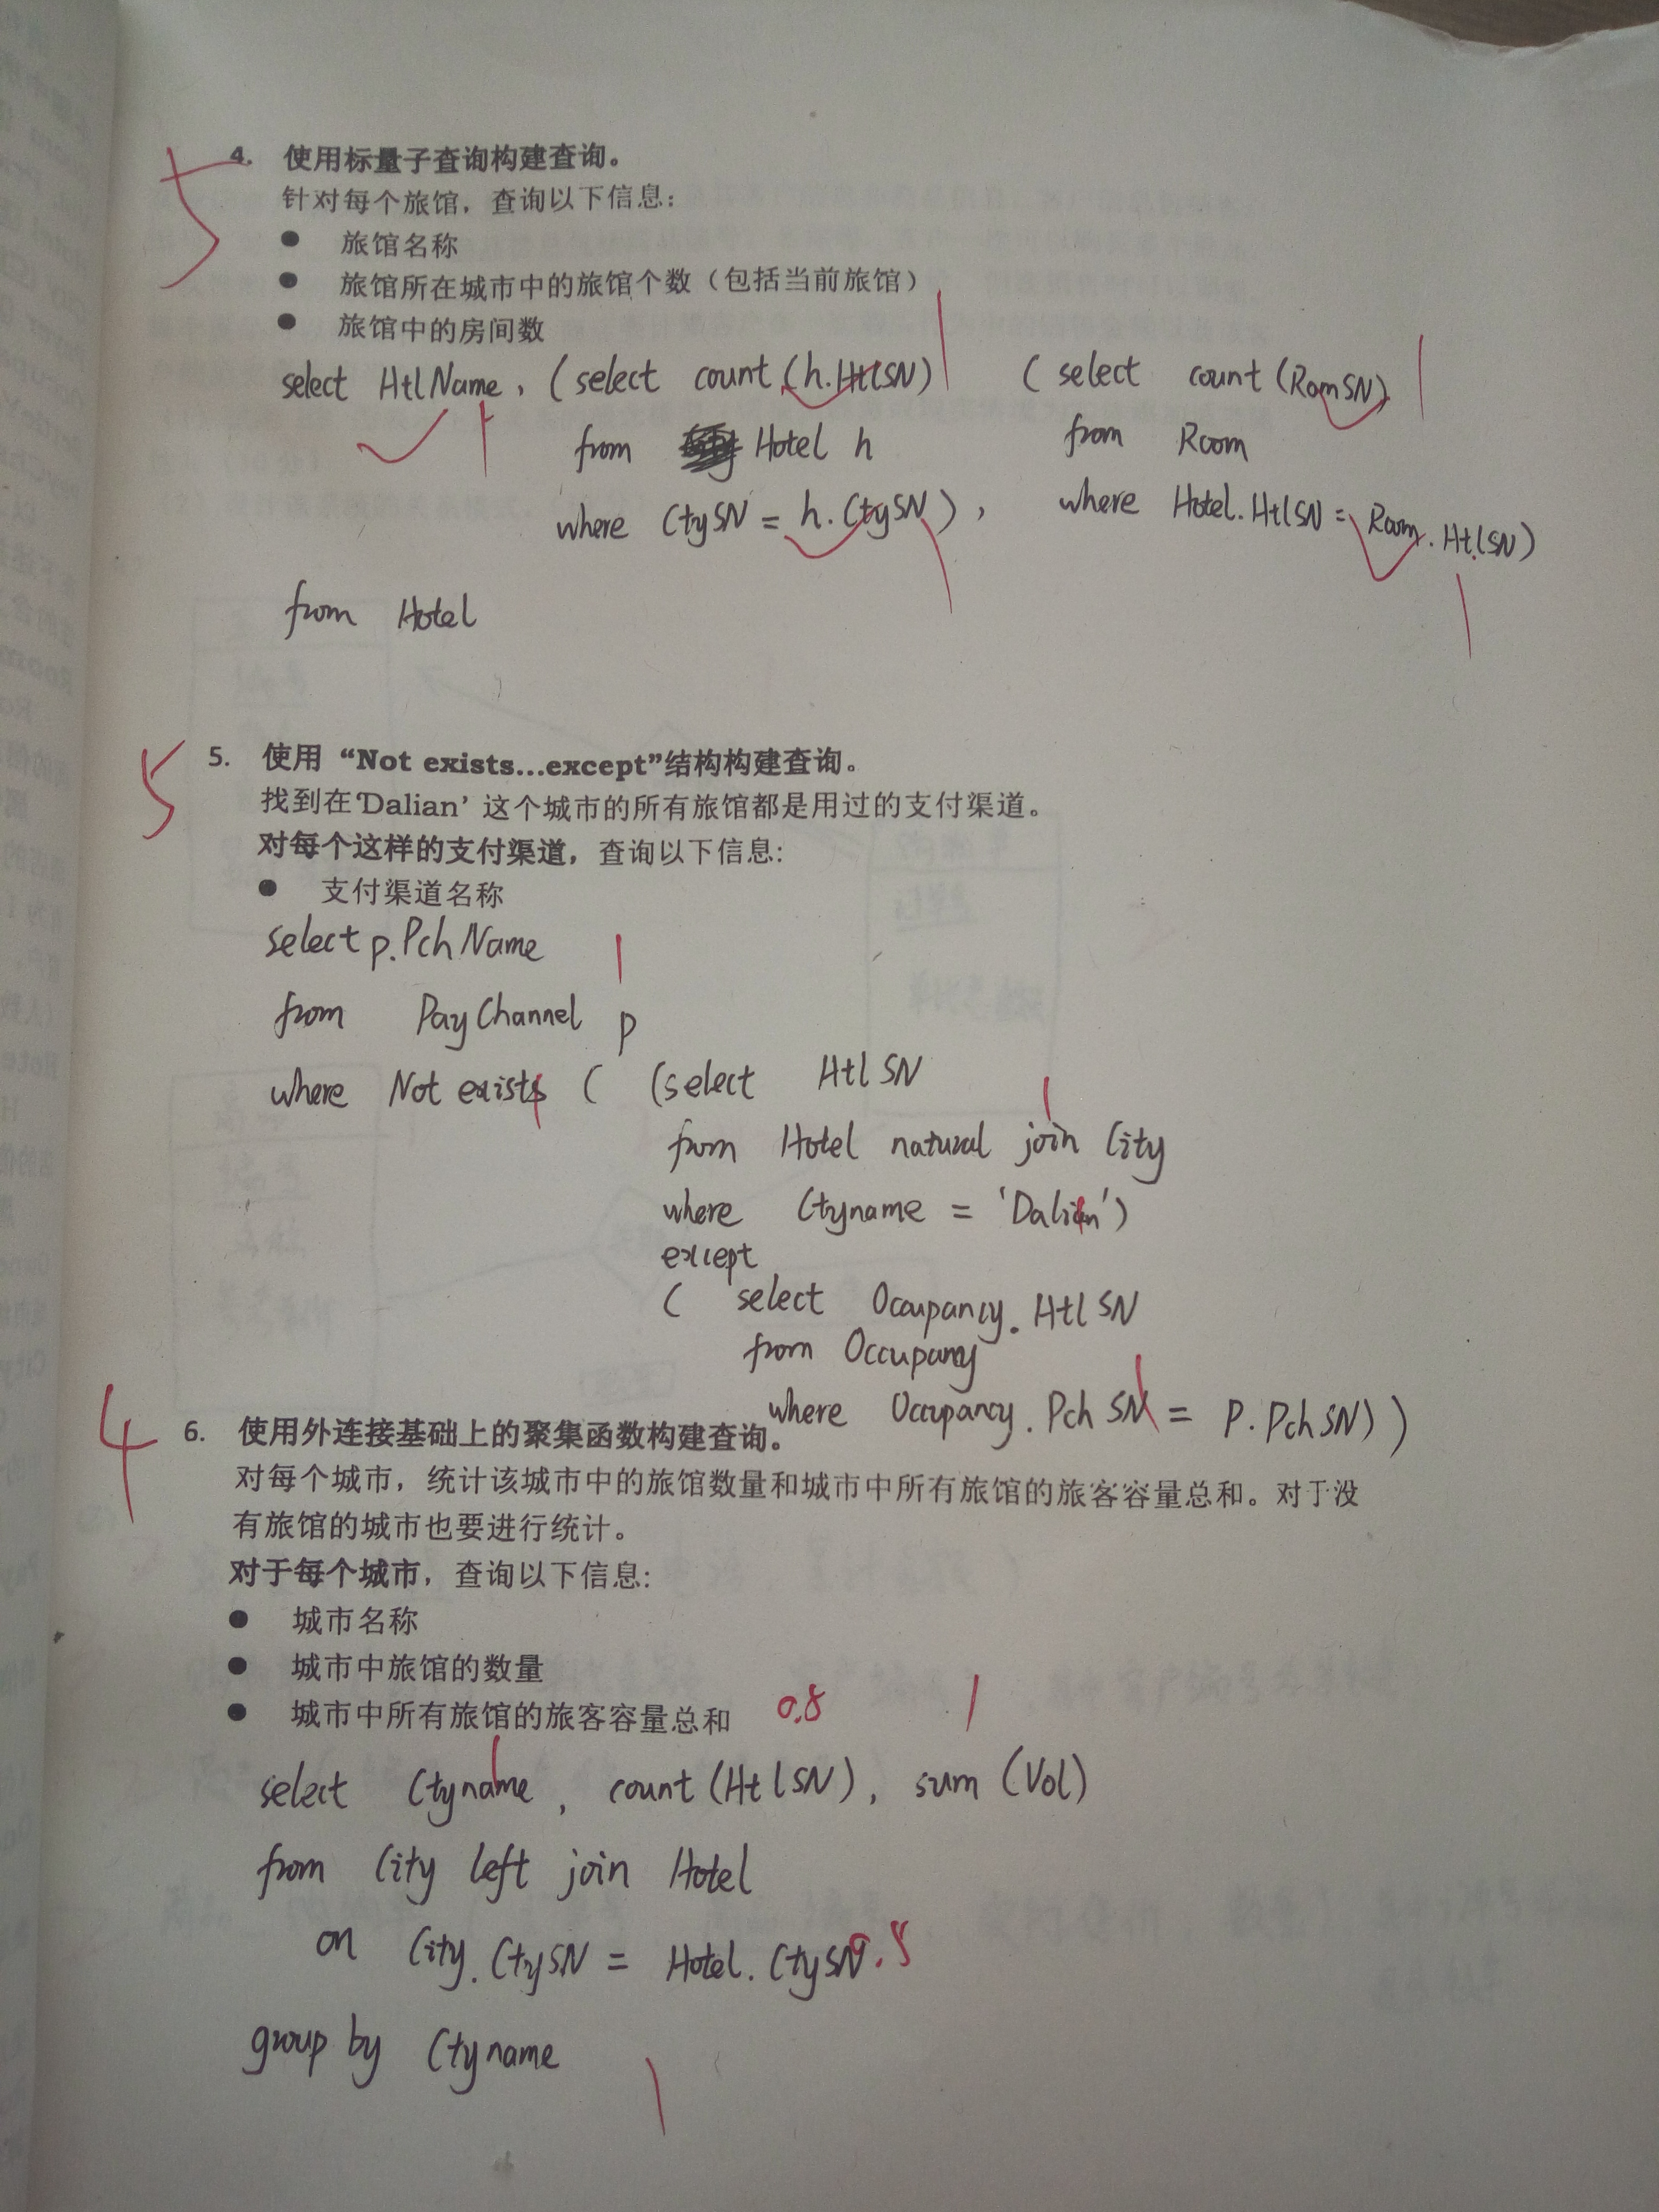 5
4. 使用标量子查询构建查询。
针对每个旅馆，查询以下信息：
● 旅馆名称
● 旅馆所在城市中的旅馆个数（包括当前旅馆）
● 旅馆中的房间数
select HtlName, (select count(h.HtlSN) (select count(RomSN)
from Hotel h from Room
where CtySN = h.CtySN), where Hotel.HtlSN = Room.HtlSN)
from Hotel
5
5. 使用“Not exists...except”结构构建查询。
找到在‘Dalian’这个城市的所有旅馆都是用过的支付渠道。
对每个这样的支付渠道，查询以下信息：
● 支付渠道名称
select p.PchName
from PayChannel p
where Not exists ( (select HtlSN
from Hotel natural join City
where Ctyname = 'Dalian')
except
( select Occupancy.HtlSN
from Occupancy
where Occupancy.PchSN = P.PchSN))
4
6. 使用外连接基础上的聚集函数构建查询。
对每个城市，统计该城市中的旅馆数量和城市中所有旅馆的旅客容量总和。对于没
有旅馆的城市也要进行统计。
对于每个城市，查询以下信息：
● 城市名称
● 城市中旅馆的数量
● 城市中所有旅馆的旅客容量总和 0.8 1
select Ctyname, count(HtlSN), sum(Vol)
from City left join Hotel
on City.CtySN = Hotel.CtySN
group by Ctyname